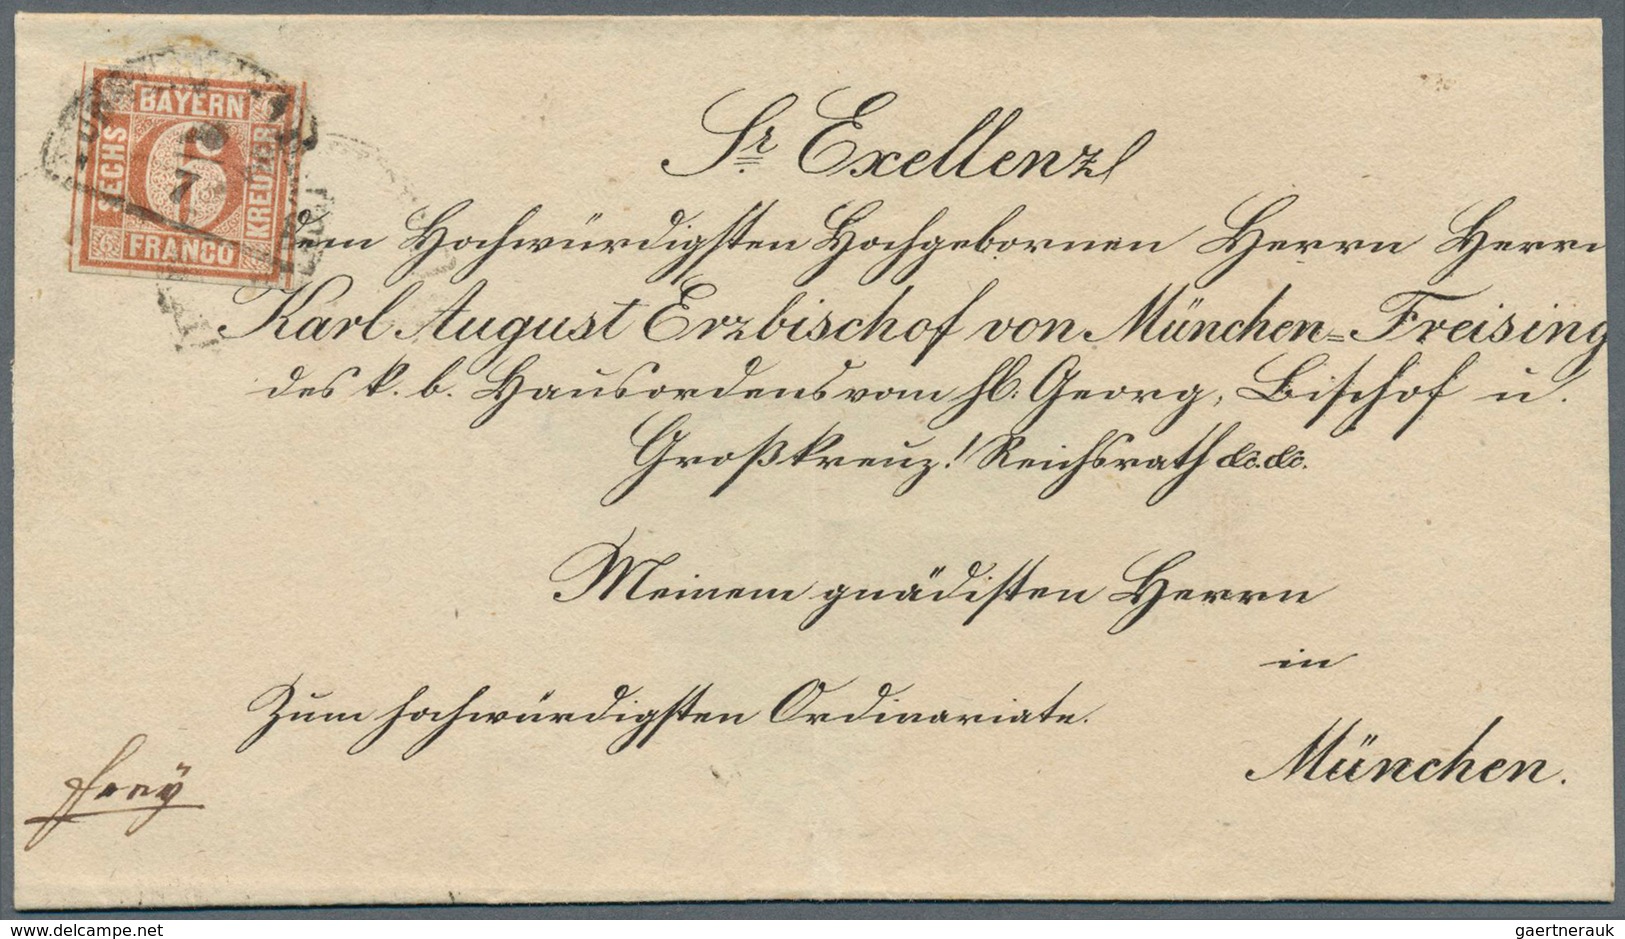 BAYERN
SECHS
KREUZER
6
FRANCO
7
Sr. Exellenz
dem Hochwürdigsten Hochgebornen Herrn Herrn
Karl August Erzbischof von München=Freising
des k. b. Hausordens vom hl. Georg, Bischof u.
Großkreuz! Reichsrath &c. &c.
Meinem gnädisten Herrn
in
Zum hochwürdigsten Ordinariate.
München.
frey
www.delcampe.net
gaertnerauk